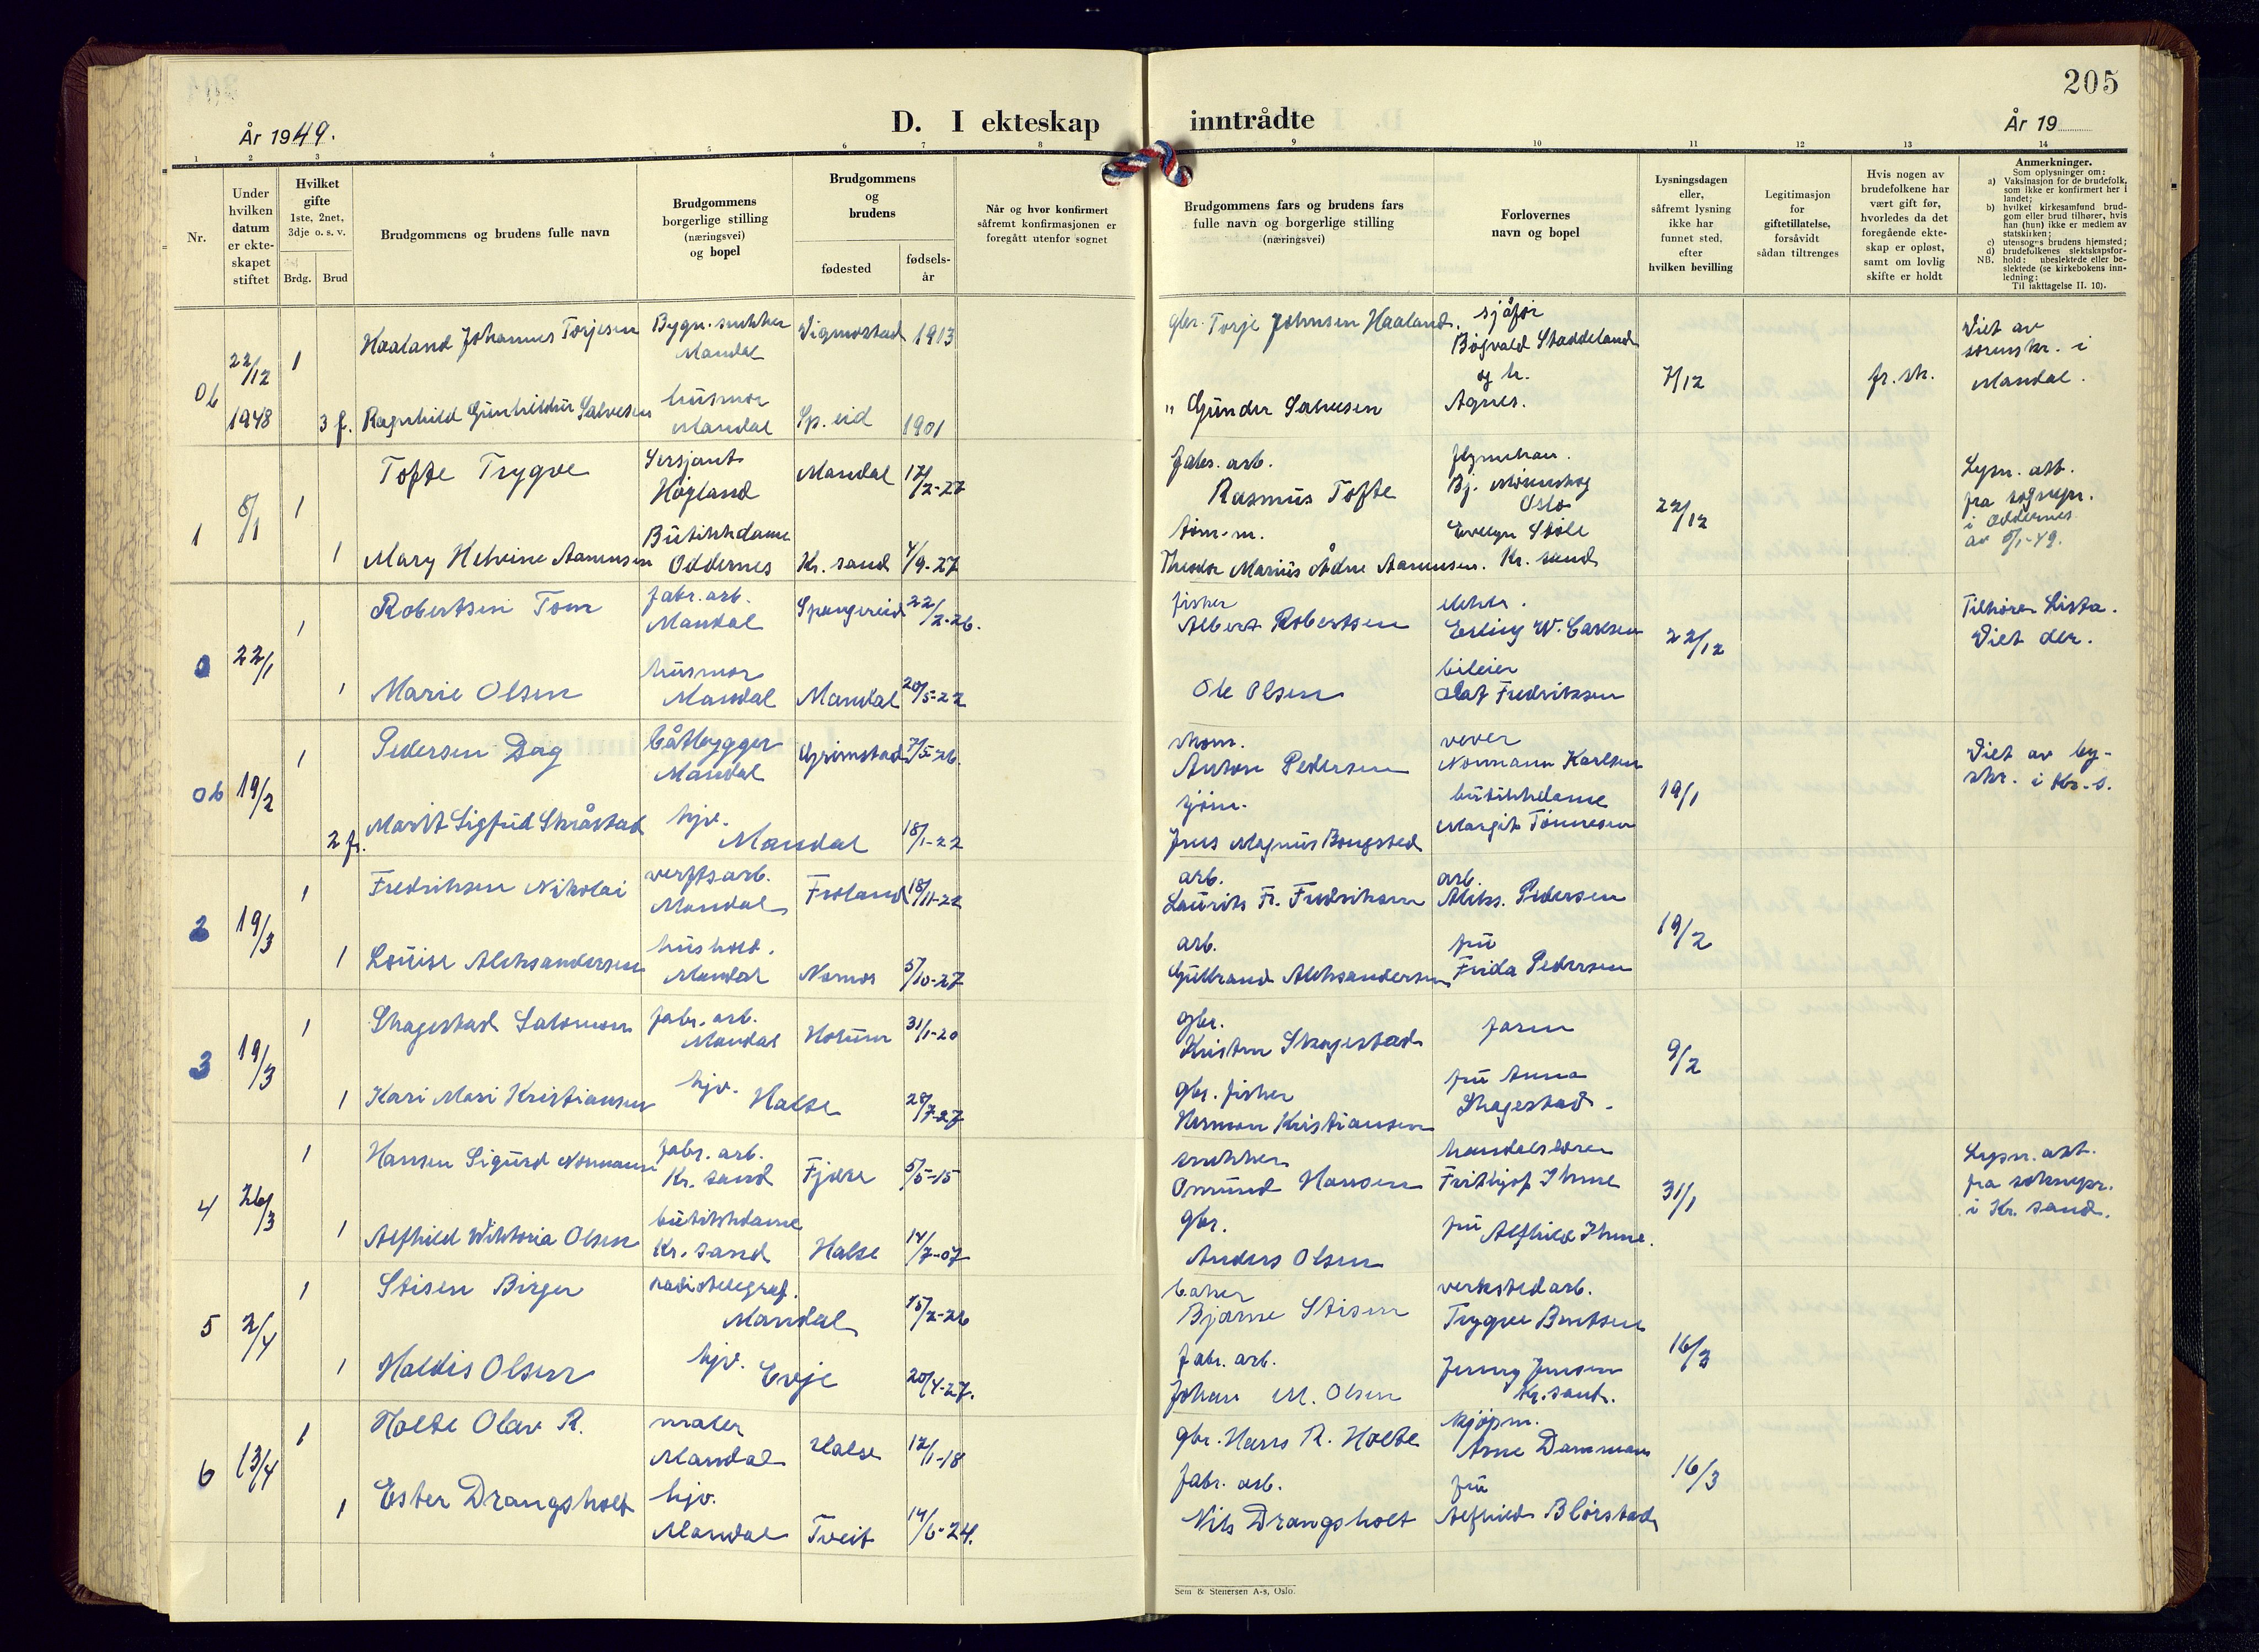 205
År 1949.
D. I ekteskap inntrådte
År 19
1 2 3 4 5 6 7 8 9 10 11 12 13 14
Nr.
Under
hvilken
datum
er ekte-
skapet
stiftet
Hvilket
gifte
1ste, 2net,
3dje o. s. v.
Brdg. Brud
Brudgommens og brudens fulle navn
Brudgommens
borgerlige stilling
(næringsvei)
og bopel
Brudgommens
og
brudens
fødested
fødsels-
år
Når og hvor konfirmert
såfremt konfirmasjonen er
foregått utenfor sognet
Brudgommens fars og brudens fars
fulle navn og borgerlige stilling
(næringsvei)
Forlovernes
navn og bopel
Lysningsdagen
eller,
såfremt lysning
ikke har
funnet sted,
efter
hvilken bevilling
Legitimasjon
for
giftetillatelse,
forsåvidt
sådan tiltrenges
Hvis nogen av
brudefolkene har
vært gift før,
hvorledes da det
foregående ekte-
skap er opløst,
samt om lovlig
skifte er holdt
Anmerkninger.
Som oplysninger om:
a) Vaksinasjon for de brudefolk,
som ikke er konfirmert her i
landet;
b) hvilket kirkesamfund brud-
gom eller brud tilhører, hvis
han (hun) ikke er medlem av
statskirken;
c) utensogns brudens hjemsted;
d) brudefolkenes slektskapsfor-
NB. hold: ubeslektede eller be-
slektede (se kirkebokens inn-
ledning:
Til iakttagelse II. 10).
0b 22/12 1948 1 Haaland Johannes Torjesen Bygn. snekker Mandal Vigmostad 1913 gbr. Torje Johnsen Haaland. sjåfør Staddeland og h. Agnes. 7/12 fr. sk. Viet av sorenskr. i Mandal.
3 f. Ragnhild Gunhildur Salvesen husmor Mandal Sp. eid 1901 " Gunder Salvesen
1 8/1 1 Tofte Trygve Sersjant Høgland Mandal 17/2-27 fabr. arb. Rasmus Tofte Bj. Oslo 22/12 Lysn. att. fra sognepr. i Oddernes av 5/1-49.
1 Mary Helvine Aamensen Butikkdame Oddernes Kr. sand 4/9-27 tøm. m. Theodor Marius Ådne Aamensen. Evelyn Støle Kr. sand
0 22/1 1 Robertsen Tom fabr. arb. Mandal Spangereid 22/2-26. fisker Albert Robertsen elektr. Erling W. Carlsen 22/12 Tilhører Lista. Viet der.
1 Marie Olsen husmor Mandal Mandal 20/5-22 Ole Olsen bileier Olaf Fredriksen
0b 19/2 1 Pedersen Dag båtbygger Mandal Grimstad 7/5-26. skom. Anton Pedersen vever Normann Karlsen 19/1 Viet av by-
skr. i Kr. s.
2 fr. Marit Sigfrid Skråstad hjv. Mandal 18/1-22 sjøm. Jens Magnus Bongsted butikkdame Margit Tønnesen
2 19/3 1 Fredriksen Nikolai verftsarb. Mandal Froland 18/11-22 arb. Laurits Fr. Fredriksen arb. Aleks. Pedersen 19/2
1 Louise Aleksandersen hushold. Mandal 5/10-27 arb. Gulbrand Aleksandersen fru Frida Pedersen
3 19/3 1 Skagestad Salomon fabr. arb. Mandal Holum 31/1-20 gbr. Kristen Skagestad faren 9/2
1 Kari Mari Kristiansen hjv. Halse 28/7-27 gbr. fisker Herman Kristiansen fru Anna Skagestad.
4 26/3 1 Hansen Sigurd Normann fabr. arb. Kr. sand Fjære 5/5-15 snekker Omund Hansen Frithjof Ihme 31/1 Lysn. att. fra soknepr. i Kr. sand.
1 Alfhild Viktoria Olsen butikkdame Kr. sand Halse 14/7-07 gbr. Anders Olsen fru Alfhild Ihme.
5 2/4 1 Stisen Birger radiotelegraf. Mandal 15/2-26 baker Bjarne Stisen verkstedarb. Trygve Bentsen 16/3
1 Haldis Olsen hjv. Evje 20/4-27. fabr. arb. Johan M. Olsen Jenny Jensen Kr. sand.
6 13/4 1 Holte Olav R. maler Mandal Halse 12/1-18 gbr. Hans R. Holte kjøpm. Arne Dammann 16/3
1 Ester Drangsholt hjv. Mandal Tveit 14/6-24. fabr. arb. Nils Drangsholt fru Alfhild Blørstad
Sem & Stenersen A-s, Oslo.